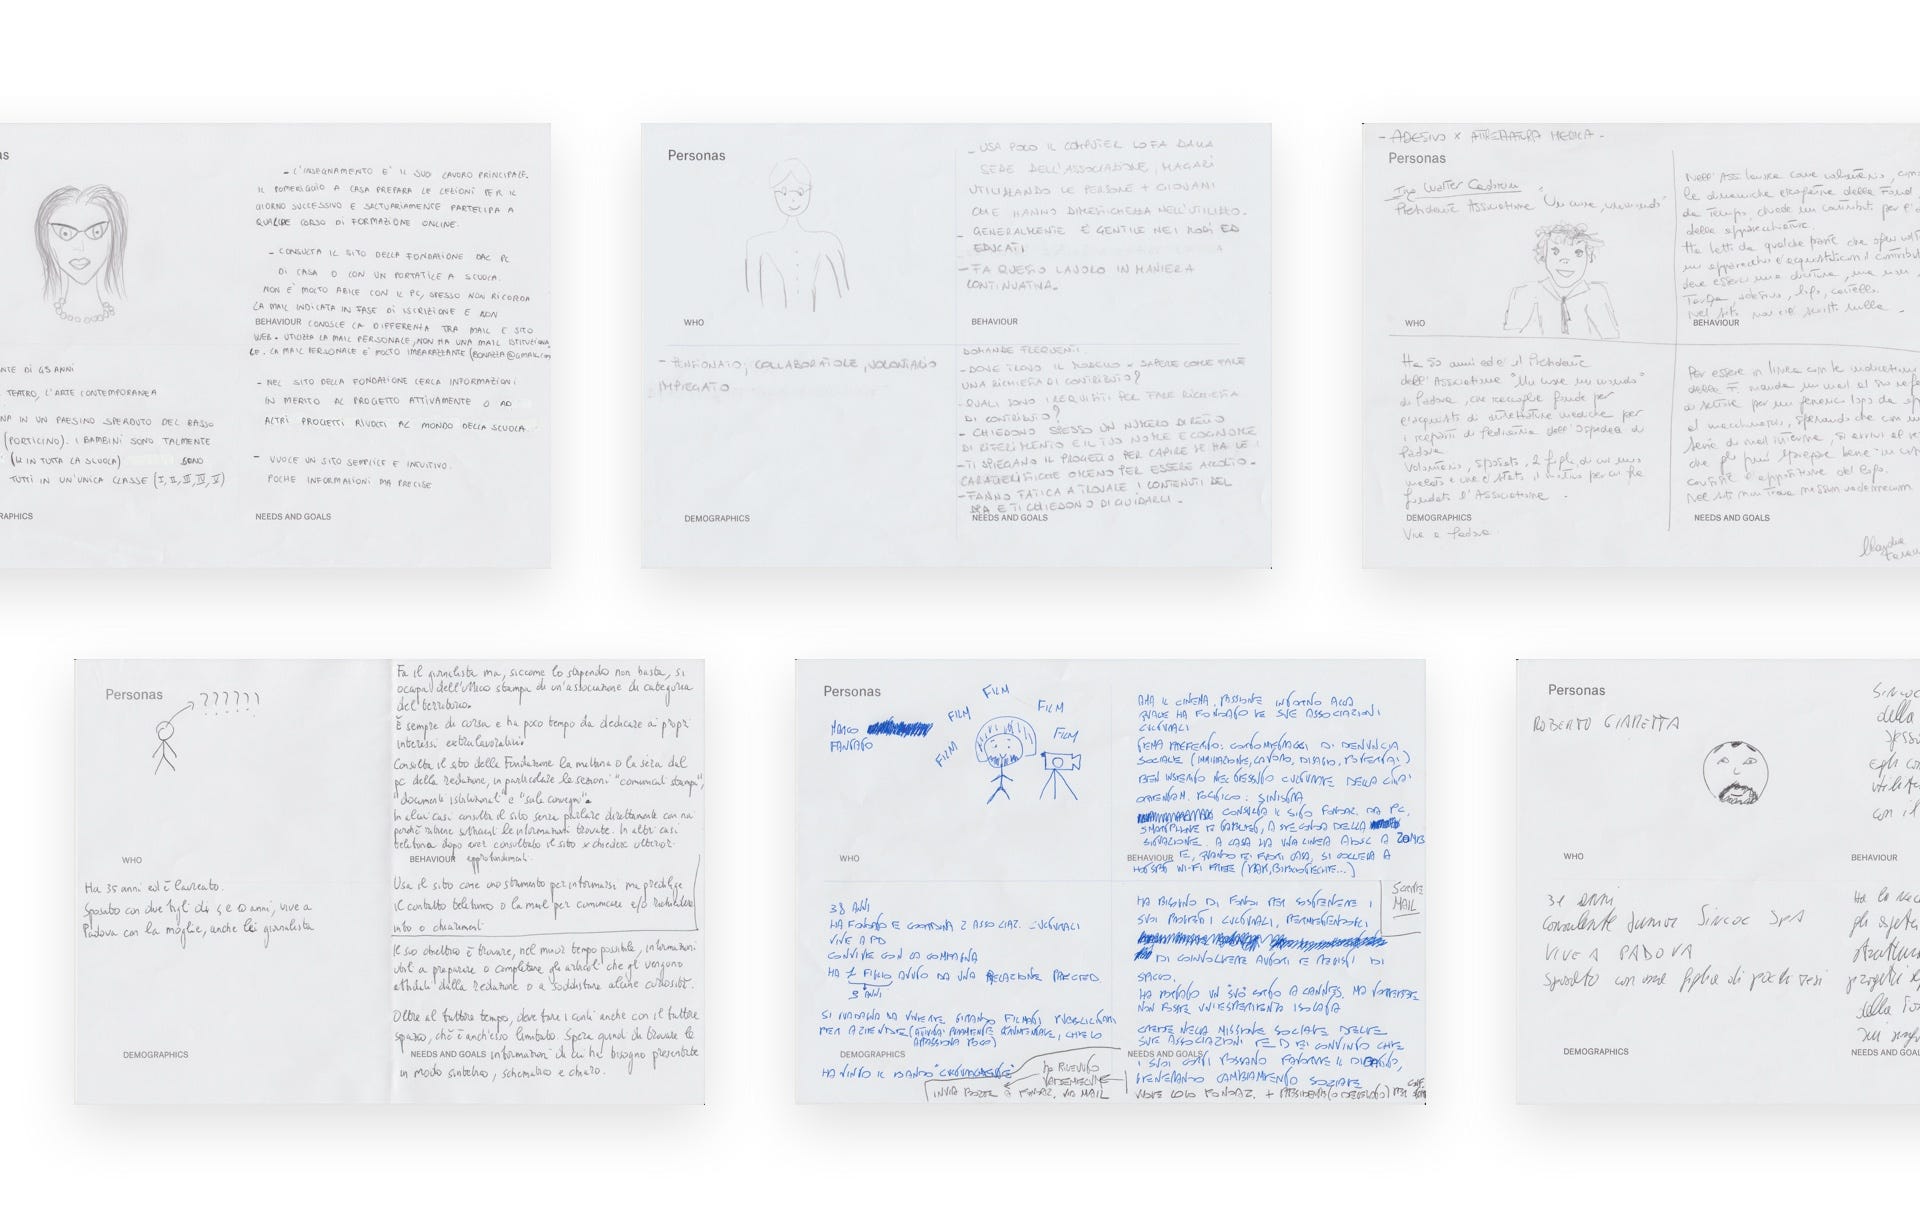 as
- L'INSEGNAMENTO E' IL SUO LAVORO PRINCIPALE.
IL POMERIGGIO A CASA PREPARA LE LEZIONI PER IL
GIORNO SUCCESSIVO E SALTUARIAMENTE PARTECIPA A
QUALCHE CORSO DI FORMAZIONE ONLINE.
- CONSULTA IL SITO DELLA FONDAZIONE DAL PC
DI CASA O CON UN PORTATILE A SCUOLA.
NON E' MOLTO ABILE CON IL PC, SPESSO NON RICORDA
LA MAIL INDICATA IN FASE DI ISCRIZIONE E NON
BEHAVIOUR
CONOSCE LA DIFFERENZA TRA MAIL E SITO
WEB. UTILIZZA LA MAIL PERSONALE, NON HA UNA MAIL ISTITUZIONA
LE. LA MAIL PERSONALE E' MOLTO IMBARAZZANTE (BONAZZA@GMAIL.COM
NTE DI 45 ANNI
TEATRO, L'ARTE CONTEMPORANEA
NA IN UN PAESINO SPERDUTO DEL BASSO
(PORTICINO). I BAMBINI SONO TALMENTE
(14 IN TUTTA LA SCUOLA) SONO
TUTTI IN UN'UNICA CLASSE (I, II, III, IV, V)
RAPHICS
- NEL SITO DELLA FONDAZIONE CERCA INFORMAZIONI
IN MERITO AL PROGETTO ATTIVAMENTE O AD
ALTRI PROGETTI RIVOLTI AL MONDO DELLA SCUOLA.
- VUOLE UN SITO SEMPLICE E INTUITIVO.
POCHE INFORMAZIONI MA PRECISE
NEEDS AND GOALS
Personas
WHO
- USA POCO IL COMPUTER LO FA DALLA
SEDE DELL'ASSOCIAZIONE, MAGARI
UTILIZZANDO LE PERSONE + GIOVANI
CHE HANNO DIMESTICHEZZA NELL'UTILIZZO.
- GENERALMENTE È GENTILE NEI MODI ED
EDUCATI
- FA QUESTO LAVORO IN MANIERA
CONTINUATIVA.
BEHAVIOUR
- PENSIONATO, COLLABORATORE, VOLONTARIO
IMPIEGATO
DEMOGRAPHICS
DOMANDE FREQUENTI:
- DOVE TROVO IL MODELLO - SAPERE COME FARE
UNA RICHIESTA DI CONTRIBUTO?
- QUALI SONO I REQUISITI PER FARE RICHIESTA
DI CONTRIBUTO?
- CHIEDONO SPESSO UN NUMERO DIRETTO
DI RIFERIMENTO E IL TUO NOME E COGNOME
- TI SPIEGANO IL PROGETTO PER CAPIRE SE HA LE
CARATTERISTICHE O MENO PER ESSERE ACCOLTO.
- FANNO FATICA A TROVARE I CONTENUTI DEL
DPA E TI CHIEDONO DI GUIDARLI.
NEEDS AND GOALS
- ADESIVO X ATTREZZATURA MEDICA -
Personas
Ing Walter
Presidente Associazione "Un cuore, un mondo"
WHO
Nell'Ass. lavora come volontario,
le dinamiche erogative della Fond
da tempo, chiede un contributo per l'
delle apparecchiature.
Ha letto da qualche parte che
deve esserci una dicitura,
Targa, adesivo, logo, cartello.
Nel sito non c'è scritto nulla.
BEHAVIOUR
Ha 50 anni ed è il Presidente
dell'Associazione "Un cuore un mondo"
di Padova, che raccoglie fondi per
l'acquisto di attrezzature mediche per
i reparti di Pediatria dell'Ospedale di
Padova.
Volontario, sposato, 2 figli di cui uno
malato e che è stato il motivo per cui ha
fondato l'Associazione.
DEMOGRAPHICS
Vive a Padova.
Per essere in linea con le indicazioni
della F. manda un mail al suo
di settore per un generico logo da
ai macchinari, sperando che con
serie di mail interne, si arrivi al
che gli può spiegare bene
l'apposizione del logo.
Nel sito non trova nessun vademecum
NEEDS AND GOALS
Personas
??????
WHO
Fa il giornalista ma, siccome lo stipendio non basta, si
occupa dell'ufficio stampa di un'associazione di categoria
del territorio.
È sempre di corsa e ha poco tempo da dedicare ai propri
interessi extralavorativi.
Consulta il sito della Fondazione la mattina o la sera dal
pc della redazione, in particolare le sezioni "comunicati stampa",
"documenti istituzionali" e "sala convegni".
In alcuni casi consulta il sito senza parlare direttamente con noi
perché ritiene sufficienti le informazioni trovate. In altri casi
telefona dopo aver consultato il sito x chiedere ulteriori
BEHAVIOUR
approfondimenti.
Ha 35 anni ed è laureato.
Sposato con due figli di 4 e 10 anni, vive a
Padova con la moglie, anche lei giornalista
DEMOGRAPHICS
Usa il sito come uno strumento per informarsi ma predilige
il contatto telefonico o la mail per comunicare e/o richiedere
info o chiarimenti
Il suo obiettivo è trovare, nel minor tempo possibile, informazioni
utili a preparare o completare gli articoli che gli vengono
affidati dalla redazione o a soddisfare alcune curiosità.
Oltre al fattore tempo, deve fare i conti anche con il fattore
spazio, che è anch'esso limitato. Spera quindi di trovare le
NEEDS AND GOALS
informazioni di cui ha bisogno presentate
in modo sintetico, schematico e chiaro.
Personas
MARCO
FANTATO
FILM
FILM
FILM
FILM
FILM
WHO
AMA IL CINEMA, PASSIONE INTORNO ALLA
QUALE HA FONDATO LE SUE ASSOCIAZIONI
CULTURALI
TEMA PREFERITO: CORTOMETRAGGI DI DENUNCIA
SOCIALE (IMMIGRAZIONE, LAVORO, DISAGIO, POVERTA')
BEN INSERITO NEL TESSUTO CULTURALE DELLA CITTA'
ORIENTAM. POLITICO: SINISTRA
CONSULTA IL SITO FONDAZ. DA PC,
SMARTPHONE E TABLET, A SECONDA DELLA
SITUAZIONE. A CASA HA UNA LINEA ADSL A 20MB
BEHAVIOUR
E, QUANDO E' FUORI CASA, SI COLLEGA A
HOTSPOT WI-FI FREE (BAR, BIBLIOTECHE...)
38 ANNI
HA FONDATO E COORDINA 2 ASSOCIAZ. CULTURALI
VIVE A PD
CONVIVE CON LA COMPAGNA
HA 1 FIGLIO AVUTO DA UNA RELAZIONE PRECED.
3 ANNI
SI GUADAGNA DA VIVERE GIRANDO FILMATI PUBBLICITARI
PER AZIENDE (ATTIVITA' PURAMENTE ALIMENTARE, CHE LO
APPASSIONA POCO)
DEMOGRAPHICS
HA VINTO IL BANDO "CULTURALMENTE"
HA RICEVUTO
VADEMECUM
INVIA BOZZE A FONDAZ. VIA MAIL
HA BISOGNO DI FONDI PER SOSTENERE I
SUOI PROGETTI CULTURALI, PERMETTENDOGLI
DI COINVOLGERE AUTORI E REGISTI DI
SPICCO.
HA PORTATO UN "SUO" CORTO A CANNES. MA VORREBBE
NON FOSSE UN'ESPERIENZA ISOLATA
CREDE NELLA MISSIONE SOCIALE DELLE
SUE ASSOCIAZIONI ED E' CONVINTO CHE
NEEDS AND GOALS
I SUOI CORTI POSSANO FAVORIRE IL DIALOGO,
GENERANDO CAMBIAMENTO SOCIALE
VUOLE LOGO FONDAZ. + PRESIDENTE (O DELEGATO) PER
SCRIVE
MAIL
Personas
ROBERTO GIARETTA
WHO
BEHAVIOUR
31 anni
consulente Junior Sincoc SpA
VIVE A PADOVA
sposato con una figlia di pochi mesi
DEMOGRAPHICS
NEEDS AND GOALS